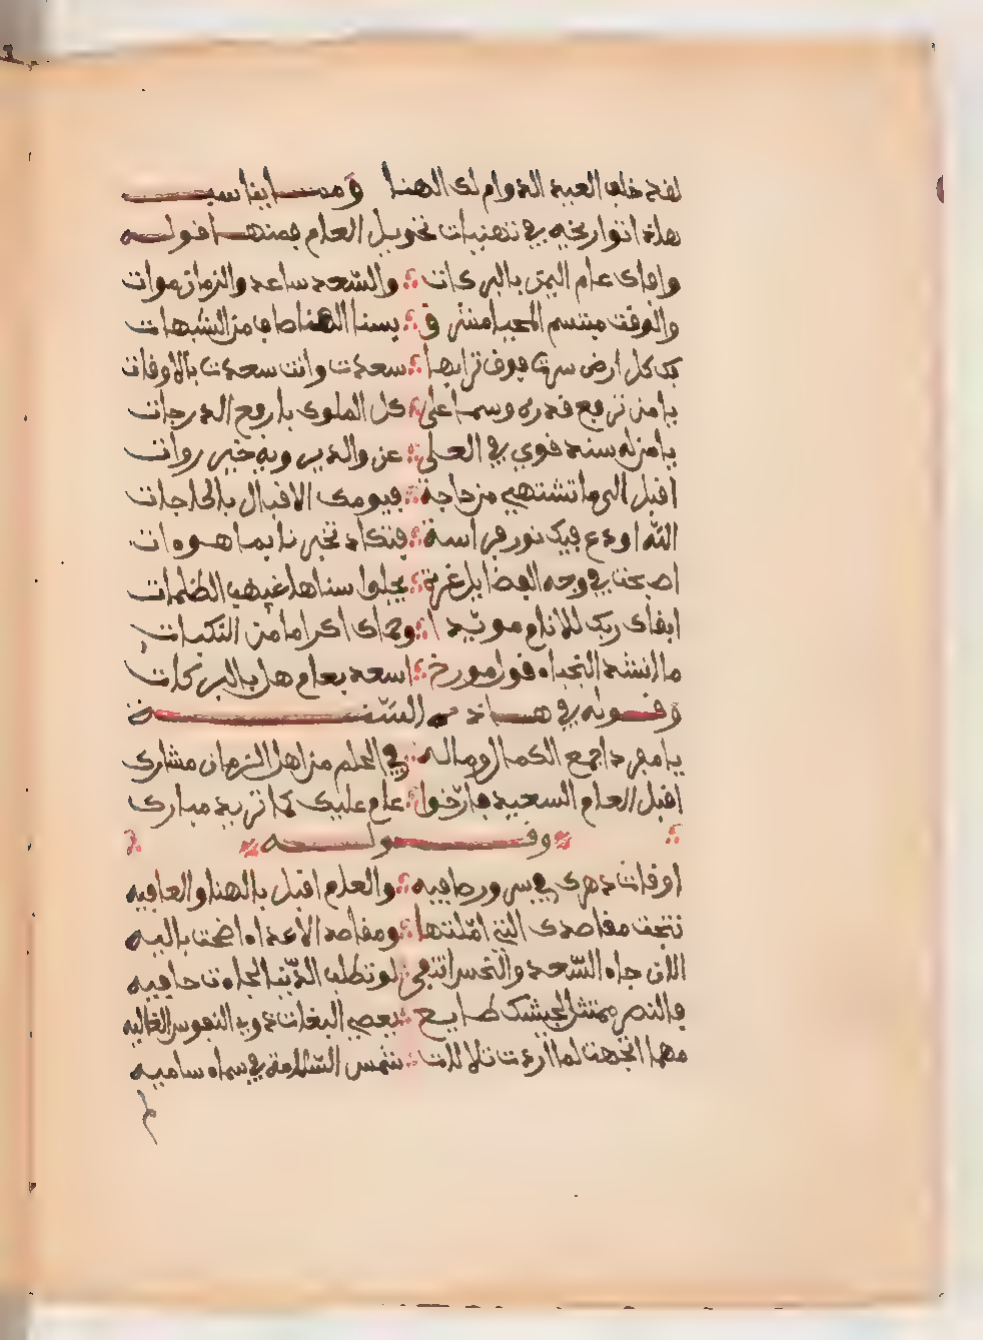 لقد خاب العبد الدوام لك الهنا ومما يناسب
هذا تواريخه في تهنيات تحويل العام فمنها قوله
وافاك عام اليمن بالبركات ؛ والسعد ساعد والزمان موات
والوقت مبتسم المحيا مشرق ؛ بسنا الهنا صاف من الشبهات
بك كل ارض سرت فوق ترابها ؛ سعدت وانت سعدت بالاوقات
يا من ترفع قدره وسما على ؛ كل الملوك بارفع الدرجات
يا من له سند قوي في العلى ؛ عن والدين وفيه خير روات
اقبل الى ما تشتهي من حاجة ؛ فيومك الاقبال بالحاجات
الله اودع فيك نور فراسة ؛ فتكاد تخبرنا بما هو ءات
اصبحت في وجه الفضايل غرة ؛ يجلوا سناها غيهب الظلمات
ابقاك ربك للانام مويدا ؛ وحماك اكراما من النكبات
ما انشد النجباء قول مورخ ؛ اسعد بعام هل بالبركات
وقوله في هاذه السنة
يا مفردا جمع الكمال وماله ؛ في الحلم من اهل الزمان مشارك
اقبل العام السعيد فارخوا ؛ عام عليك كما تريد مبارك
؛ وقوله ؛
اوقات دهرك في سرور صافيه ؛ والعام اقبل بالهنا والعافيه
نتجت مقاصدك التي املتها ؛ ومقاصد الاعداء اضحت باليه
الان جاء السعد والنحس انتفى ؛ لو تطلب الدنيا لجاءت حافيه
فالنصر ممتثل لجيشك طايع ؛ يعصي البغات ذوي النفوس الغاليه
مهما اتجهت لما اردت تلالات ؛ شمس السلامة في سماء ساميه